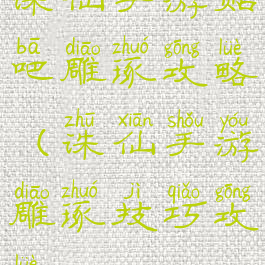 诛仙手游贴
bā diāo zhuó gōng lüè
吧雕琢攻略
zhū xiān shǒu yóu
（诛仙手游
diāo zhuó jì qiǎo gōng
雕琢技巧攻
lüè